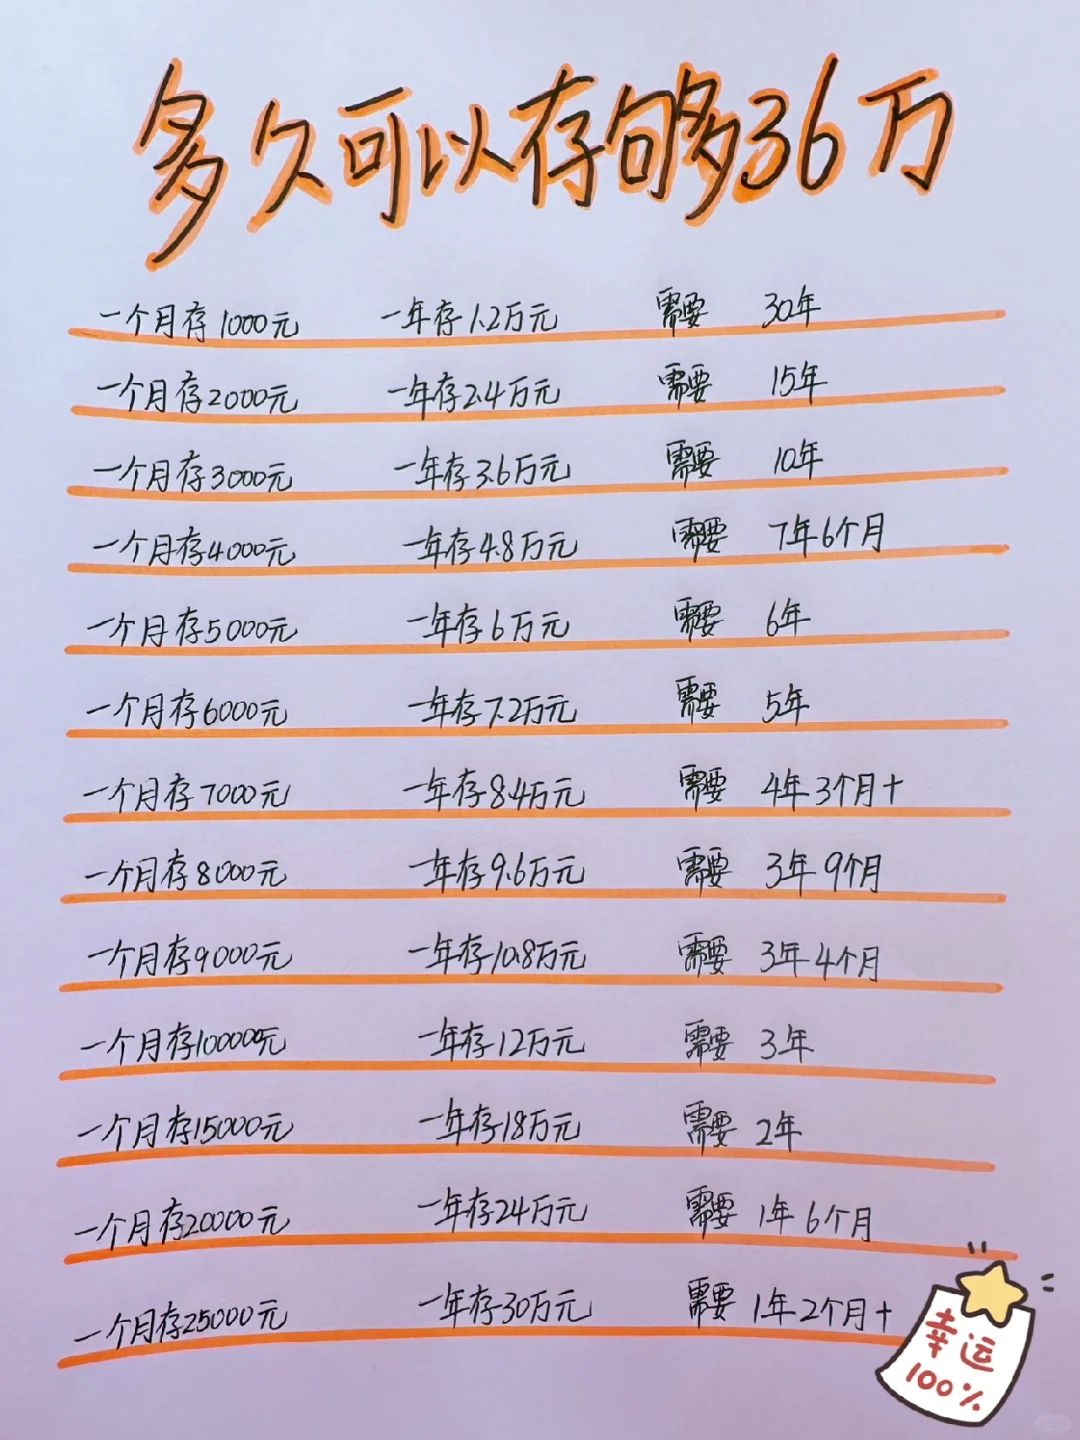 多久可以存够36万
一个月存1000元 一年存1.2万元 需要 30年
一个月存2000元 一年存2.4万元 需要 15年
一个月存3000元 一年存3.6万元 需要 10年
一个月存4000元 一年存4.8万元 需要 7年6个月
一个月存5000元 一年存6万元 需要 6年
一个月存6000元 一年存7.2万元 需要 5年
一个月存7000元 一年存8.4万元 需要 4年3个月+
一个月存8000元 一年存9.6万元 需要 3年9个月
一个月存9000元 一年存10.8万元 需要 3年4个月
一个月存10000元 一年存12万元 需要 3年
一个月存15000元 一年存18万元 需要 2年
一个月存20000元 一年存24万元 需要 1年6个月
一个月存25000元 一年存30万元 需要 1年2个月+
幸运
100%